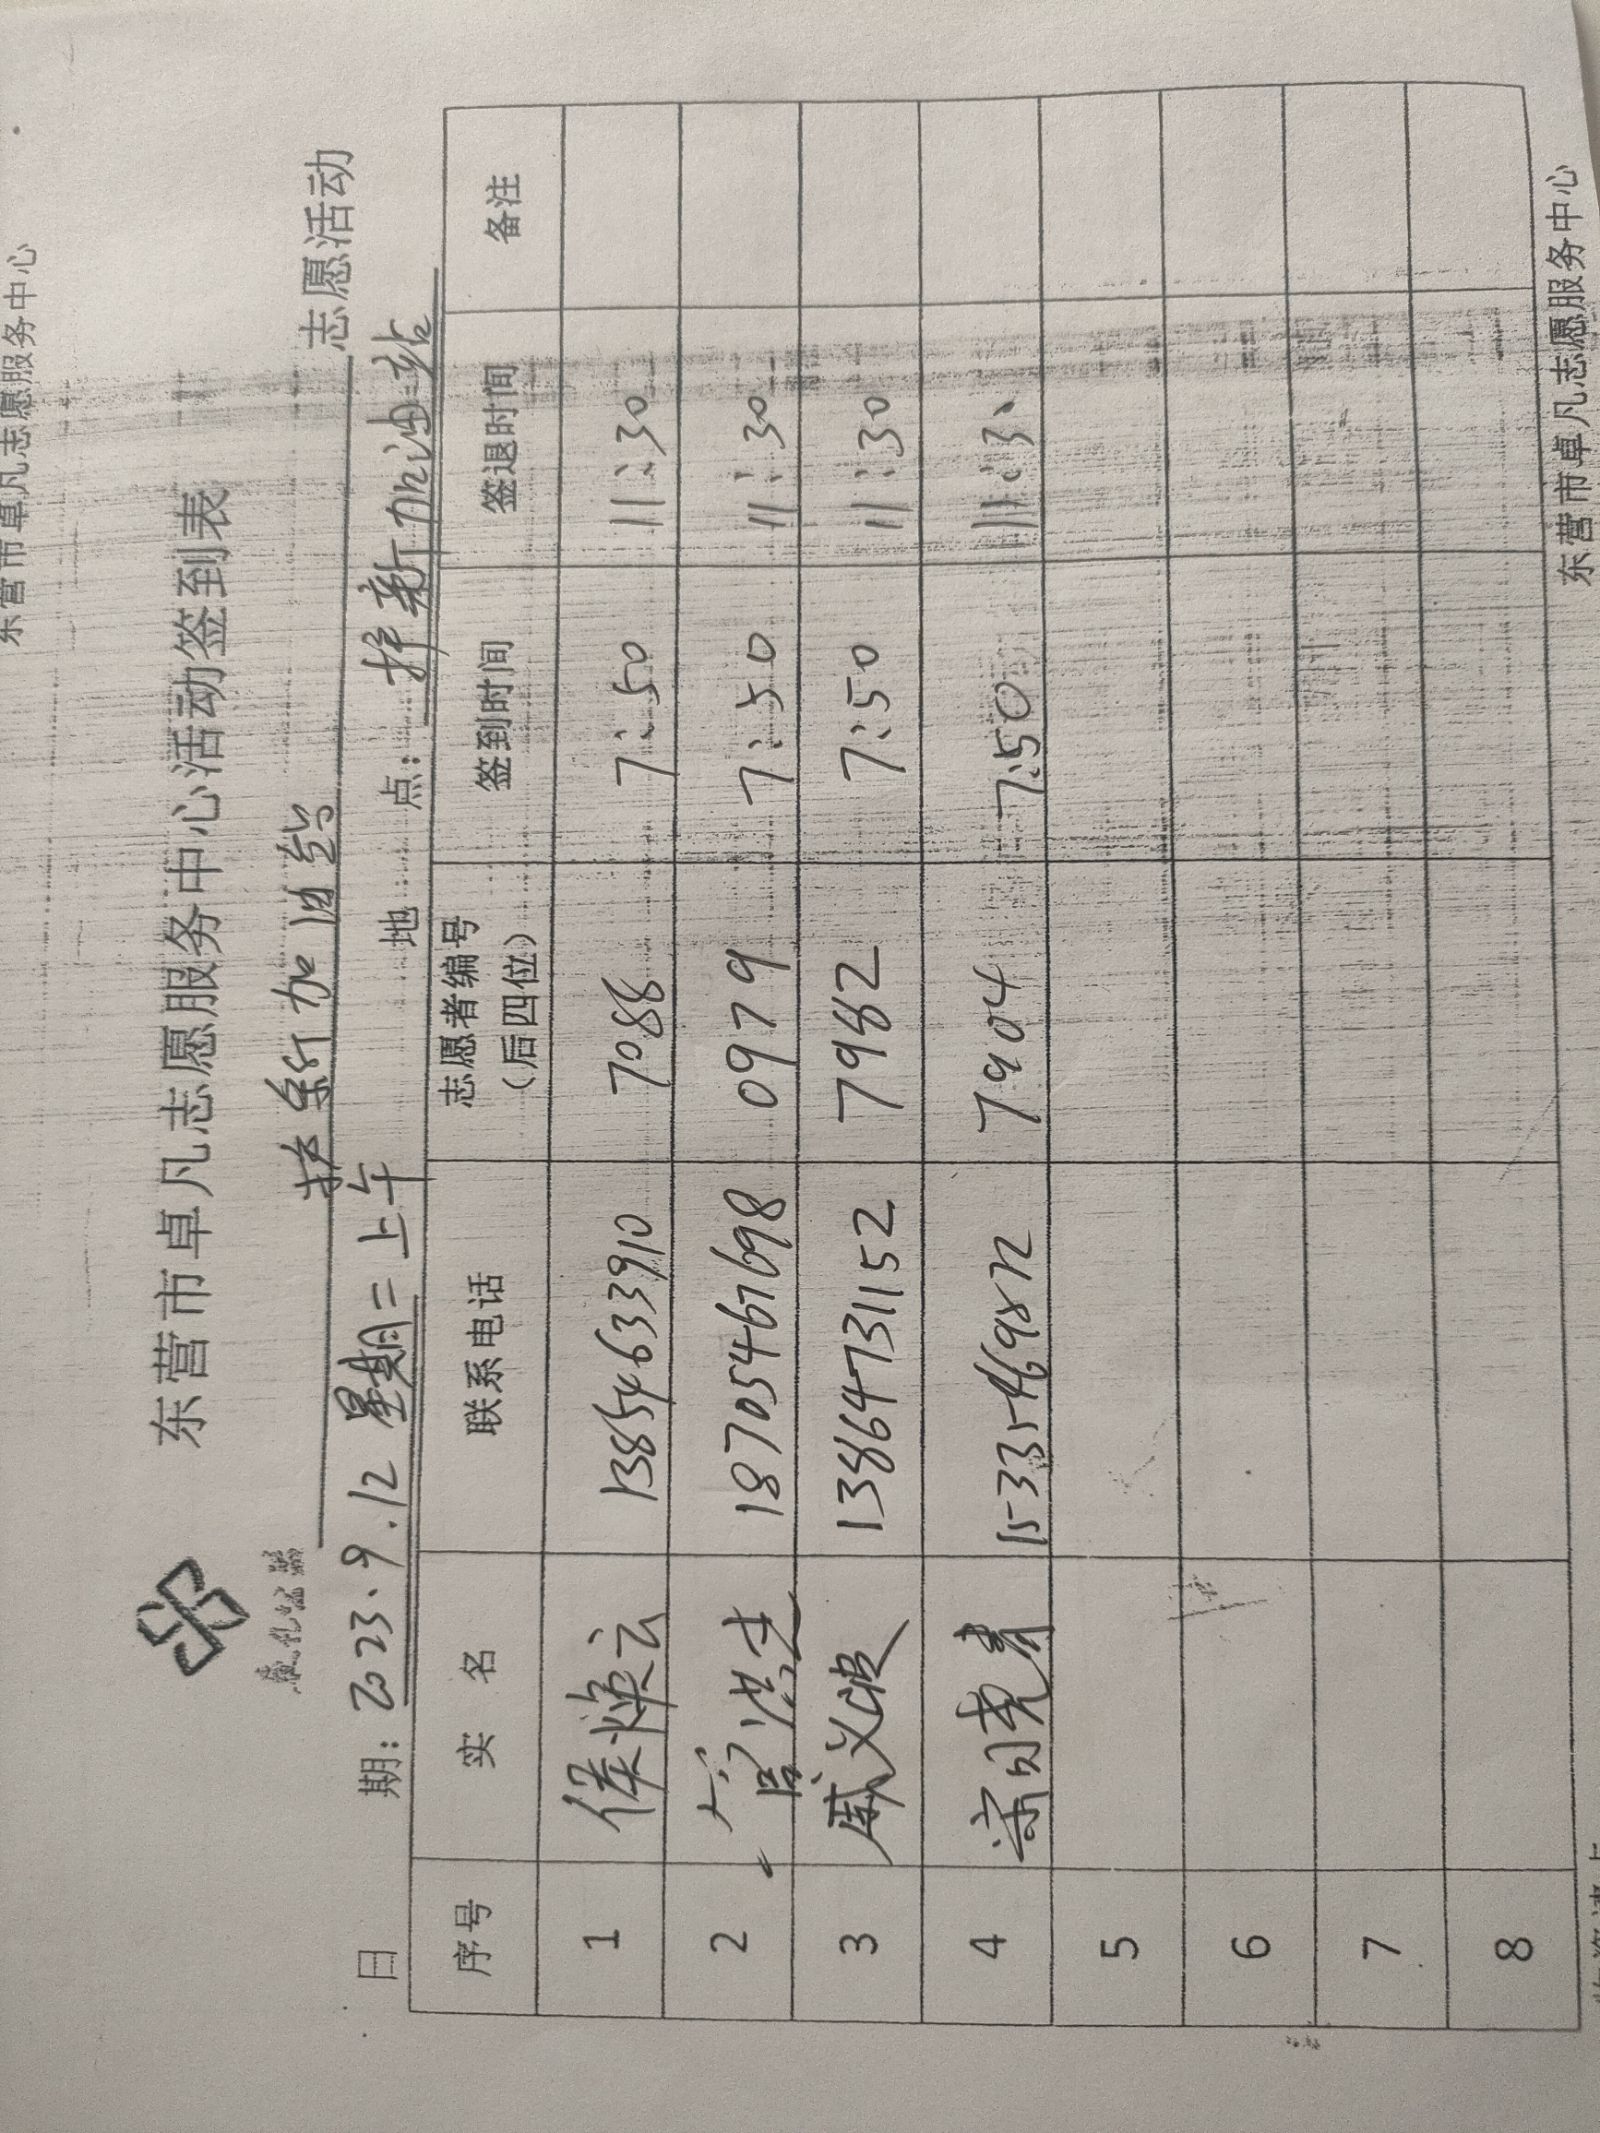 东营市卓凡志愿服务中心
东营市卓凡志愿服务中心活动签到表
择新加油站 志愿活动
日 期：2023.9.12 星期二上午 地 点：择新加油站
序号 实 名 联系电话 志愿者编号（后四位） 签到时间 签退时间 备注
1 侯焕云 13854633910 7088 7:50 11:30
2 官洪 18705467698 0979 7:50 11:30
3 戚义波 13864731152 7982 7:50 11:30
4 7904 7:50 11:30
5
6
7
8
东营市卓凡志愿服务中心